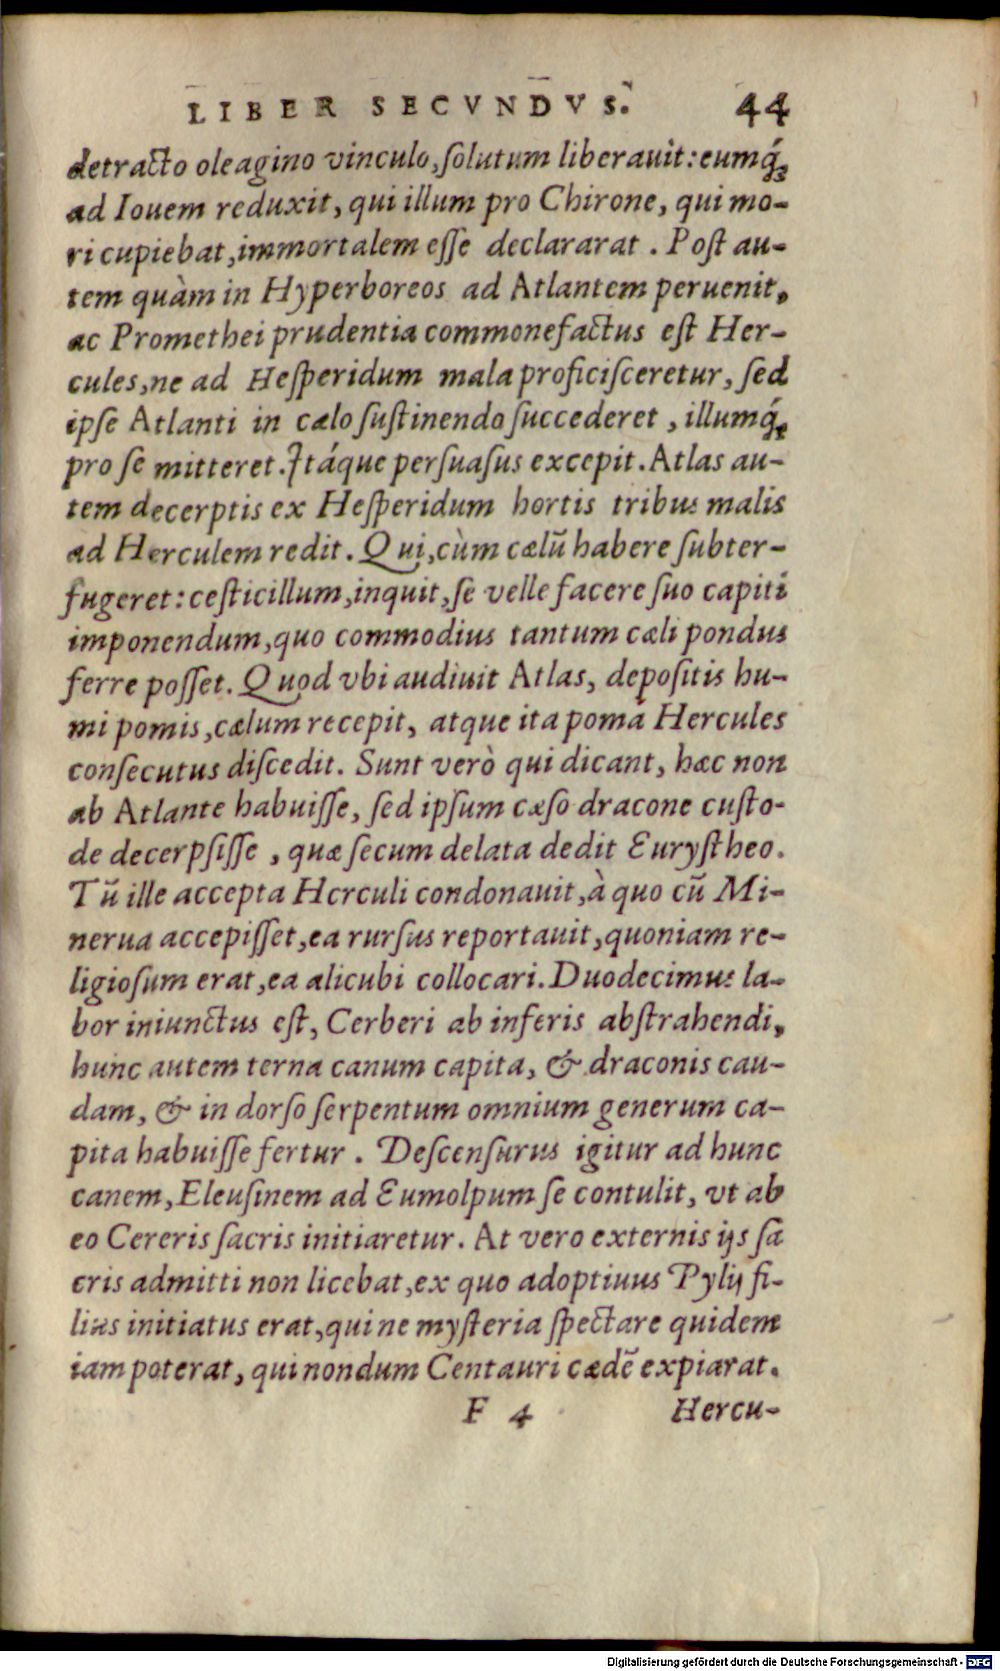 LIBER SECVNDVS. 44
detracto oleagino vinculo, ſolutum liberauit: eumq́;
ad Iouem reduxit, qui illum pro Chirone, qui mo-
ri cupiebat, immortalem eſſe declararat. Poſt au-
tem quàm in Hyperboreos ad Atlantem peruenit,
ac Promethei prudentia commonefactus eſt Her-
cules, ne ad Heſperidum mala proficiſceretur, ſed
ipſe Atlanti in cælo ſuſtinendo ſuccederet, illumq́;
pro ſe mitteret. Itáque perſuaſus excepit. Atlas au-
tem decerptis ex Heſperidum hortis tribus malis
ad Herculem redit. Qui, cùm cælū habere ſubter-
fugeret: ceſticillum, inquit, ſe velle facere ſuo capiti
imponendum, quo commodius tantum cæli pondus
ferre poſſet. Quod vbi audiuit Atlas, depoſitis hu-
mi pomis, cælum recepit, atque ita poma Hercules
conſecutus diſcedit. Sunt verò qui dicant, hæc non
ab Atlante habuiſſe, ſed ipſum cæſo dracone cuſto-
de decerpſiſſe, quæ ſecum delata dedit Euryſtheo.
Tū ille accepta Herculi condonauit, à quo cū Mi-
nerua accepiſſet, ea rurſus reportauit, quoniam re-
ligioſum erat, ea alicubi collocari. Duodecimus la-
bor iniunctus eſt, Cerberi ab inferis abſtrahendi,
hunc autem terna canum capita, & draconis cau-
dam, & in dorſo ſerpentum omnium generum ca-
pita habuiſſe fertur. Deſcenſurus igitur ad hunc
canem, Eleuſinem ad Eumolpum ſe contulit, vt ab
eo Cereris ſacris initiaretur. At vero externis ijs ſa
cris admitti non licebat, ex quo adoptiuus Pylij fi-
lius initiatus erat, qui ne myſteria ſpectare quidem
iam poterat, qui nondum Centauri cædē expiarat.
F 4 Hercu-
Digitalisierung gefördert durch die Deutsche Forschungsgemeinschaft - DFG